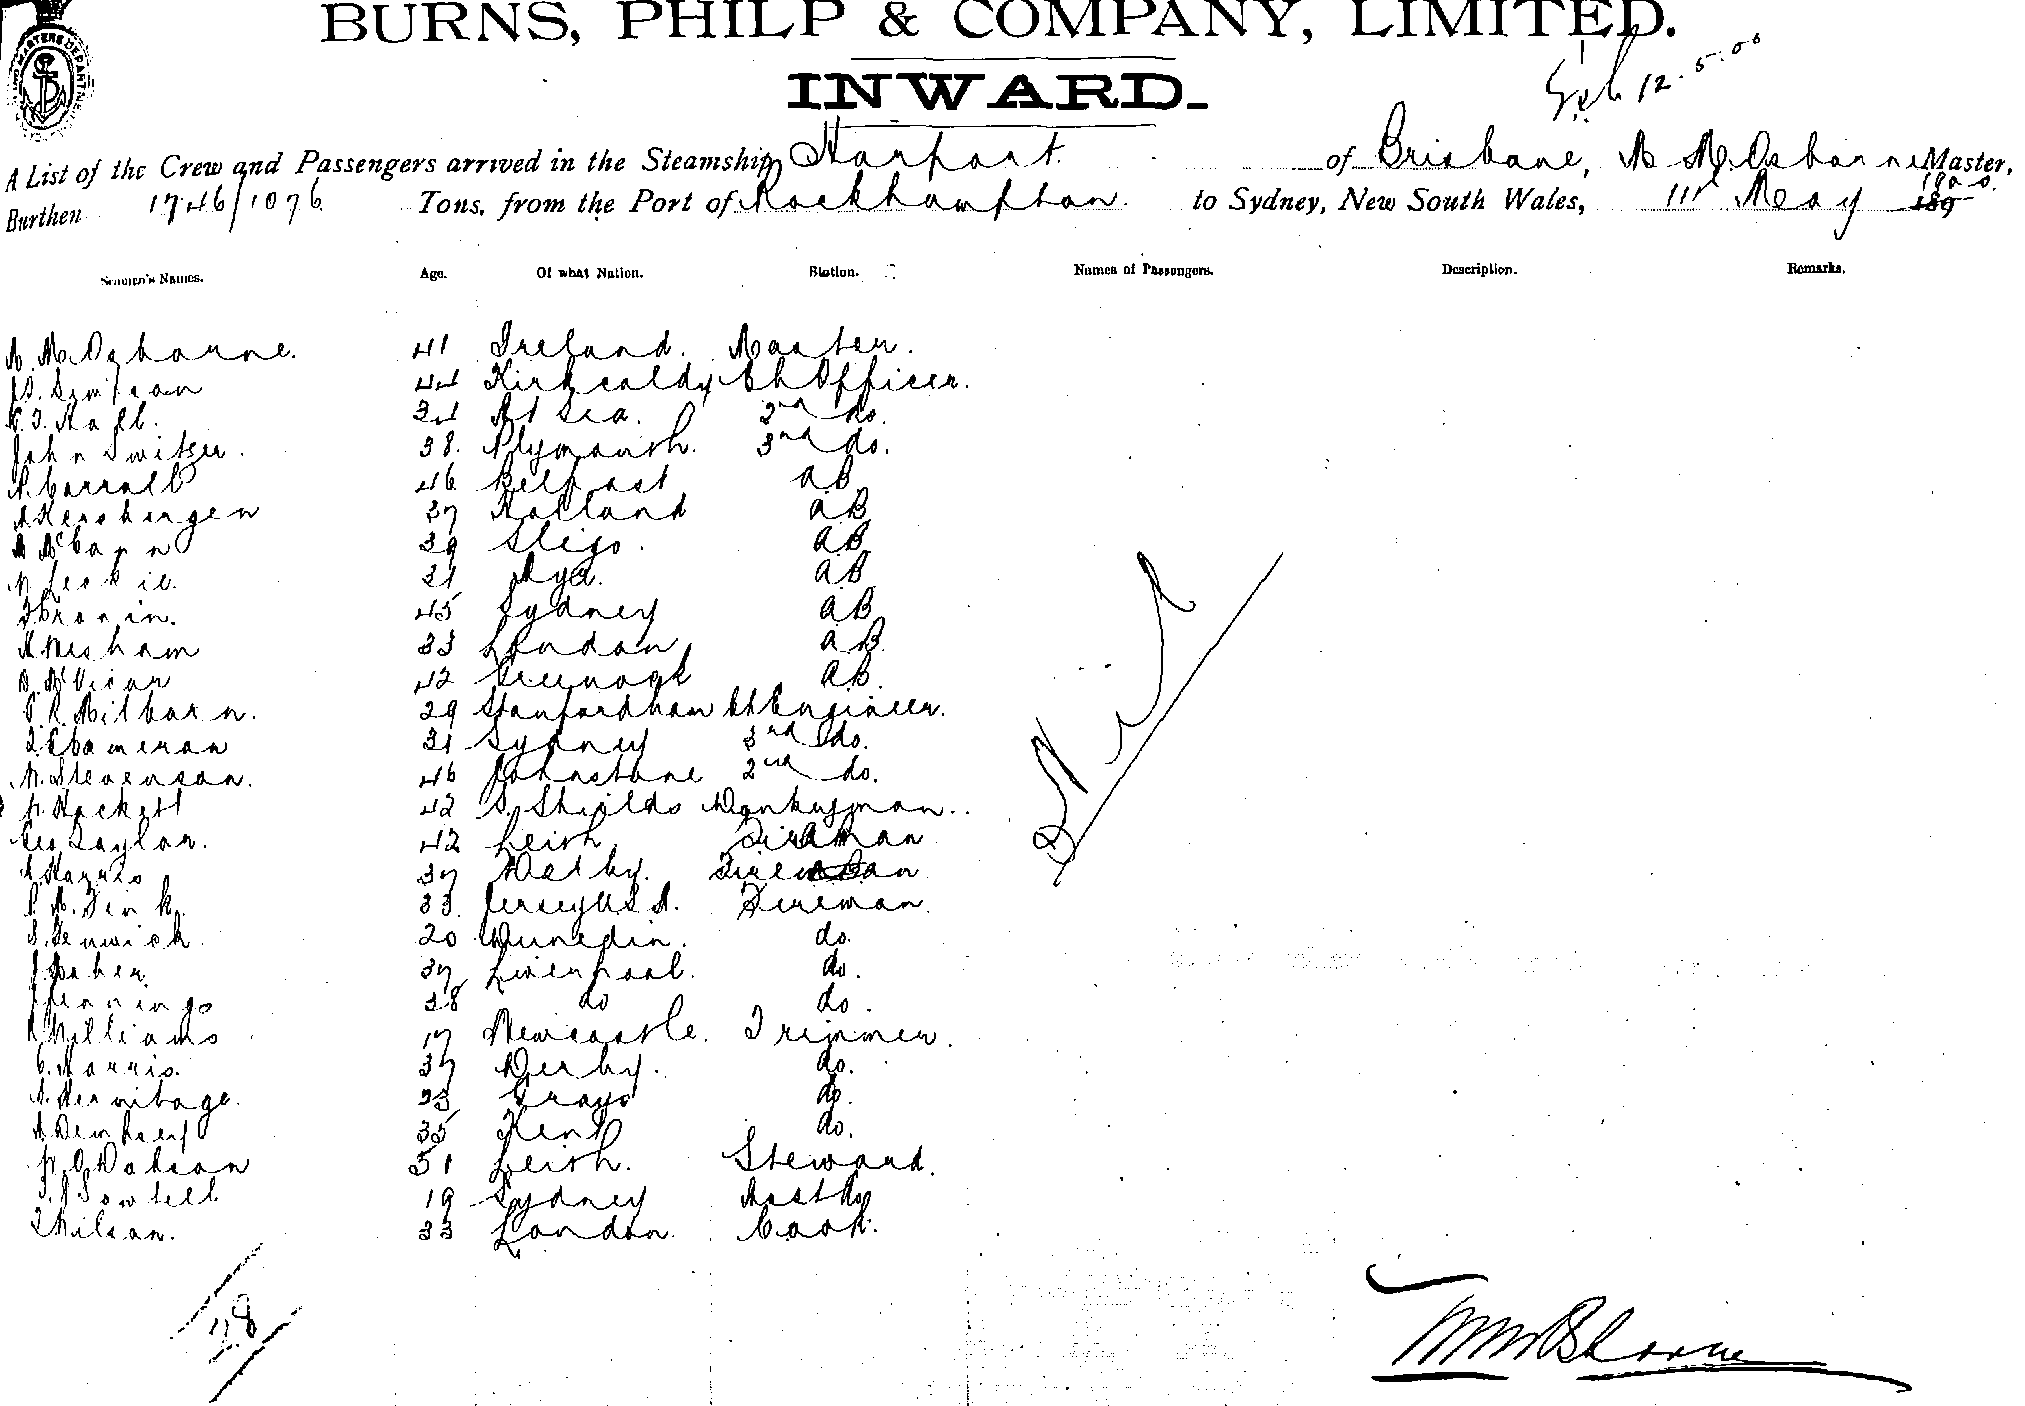 BURNS, PHILP & COMPANY, LIMITED.
INWARD.
12.5.00
A List of the Crew and Passengers arrived in the Steamship Airport of Brisbane, W M Osborne Master,
Burthen 1746/1076 Tons, from the Port of Rockhampton to Sydney, New South Wales, 11th May 1900
Seamen's Names. Age. Of what Nation. Station. Names of Passengers. Description. Remarks.
W. M. Osborne. 41 Ireland. Master.
44 Kirkcaldy Ch Officer.
34 At Sea. 2nd do.
John Switzer. 38. Plymouth. 3rd do.
Carroll 46 Belfast AB
37 Holland AB
39 Sligo. AB
Leckie. AB
Cronin. 45 Sydney AB
33 London AB
42 Greenock AB
Milborn. 29 Stanfordham Ch Engineer.
Cameron 31 Sydney 3rd do.
W. Stevenson. 46 Johnstone 2nd do.
Hackett 42 S. Shields Donkeyman.
Geo Taylor. 42 Leith Fireman
Harris 37 Fireman
Fink. 33. Jersey U.S.A. Fireman
Fenwick 20 Dunedin. do.
37 Liverpool. do.
Jennings 38 do do.
Williams 17 Newcastle. Trimmer.
C. Harris. 37 Derby. do.
A. Hermitage. 23 Grays do.
Dempsey 35 Kent do.
Dobson 51 Leith. Steward.
Sowtell 19 Sydney Asst do
Wilson. 33 London. Cook.
Nil
28
WM Osborne